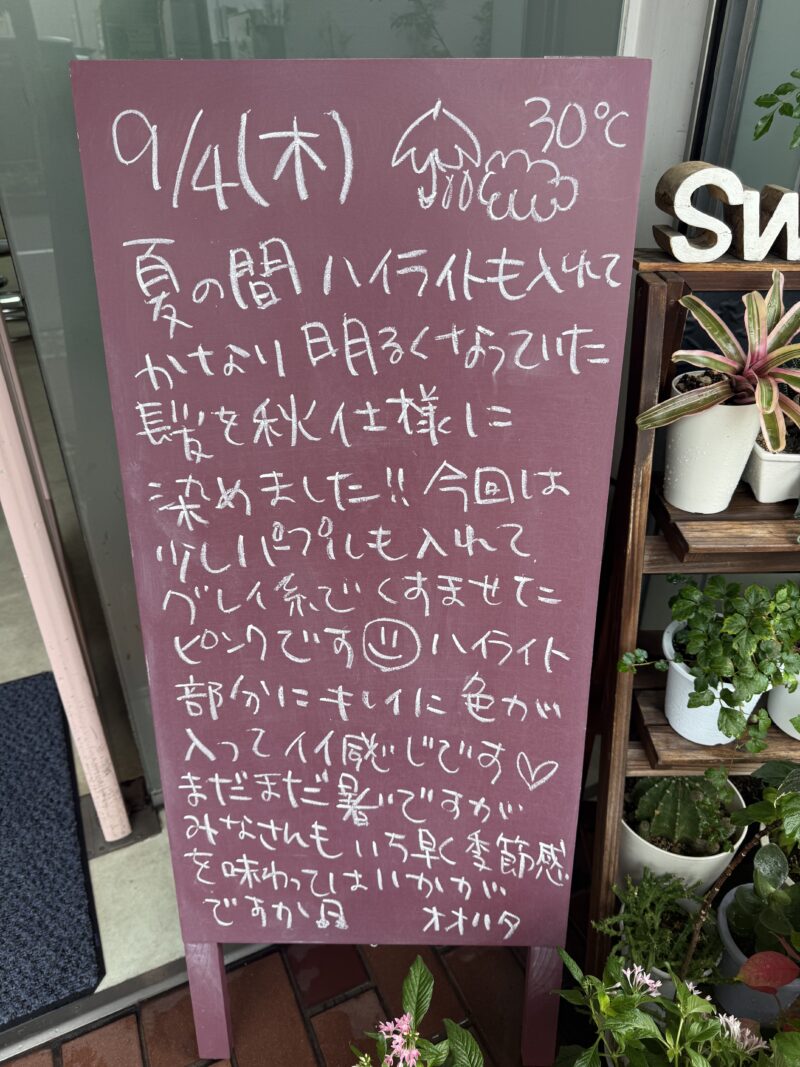 9/4(木) 30℃
夏の間 ハイライトも入れて
かなり 明るくなっていた
髪を秋仕様に
染めました!! 今回は
少しパープルも入れて
グレイ系で くすませた
ピンクです ハイライト
部分にキレイに 色が
入って イイ感じです♡
まだまだ暑いですが
みなさんも いち早く 季節感
を味わってはいかが
ですか オオハタ
Sw